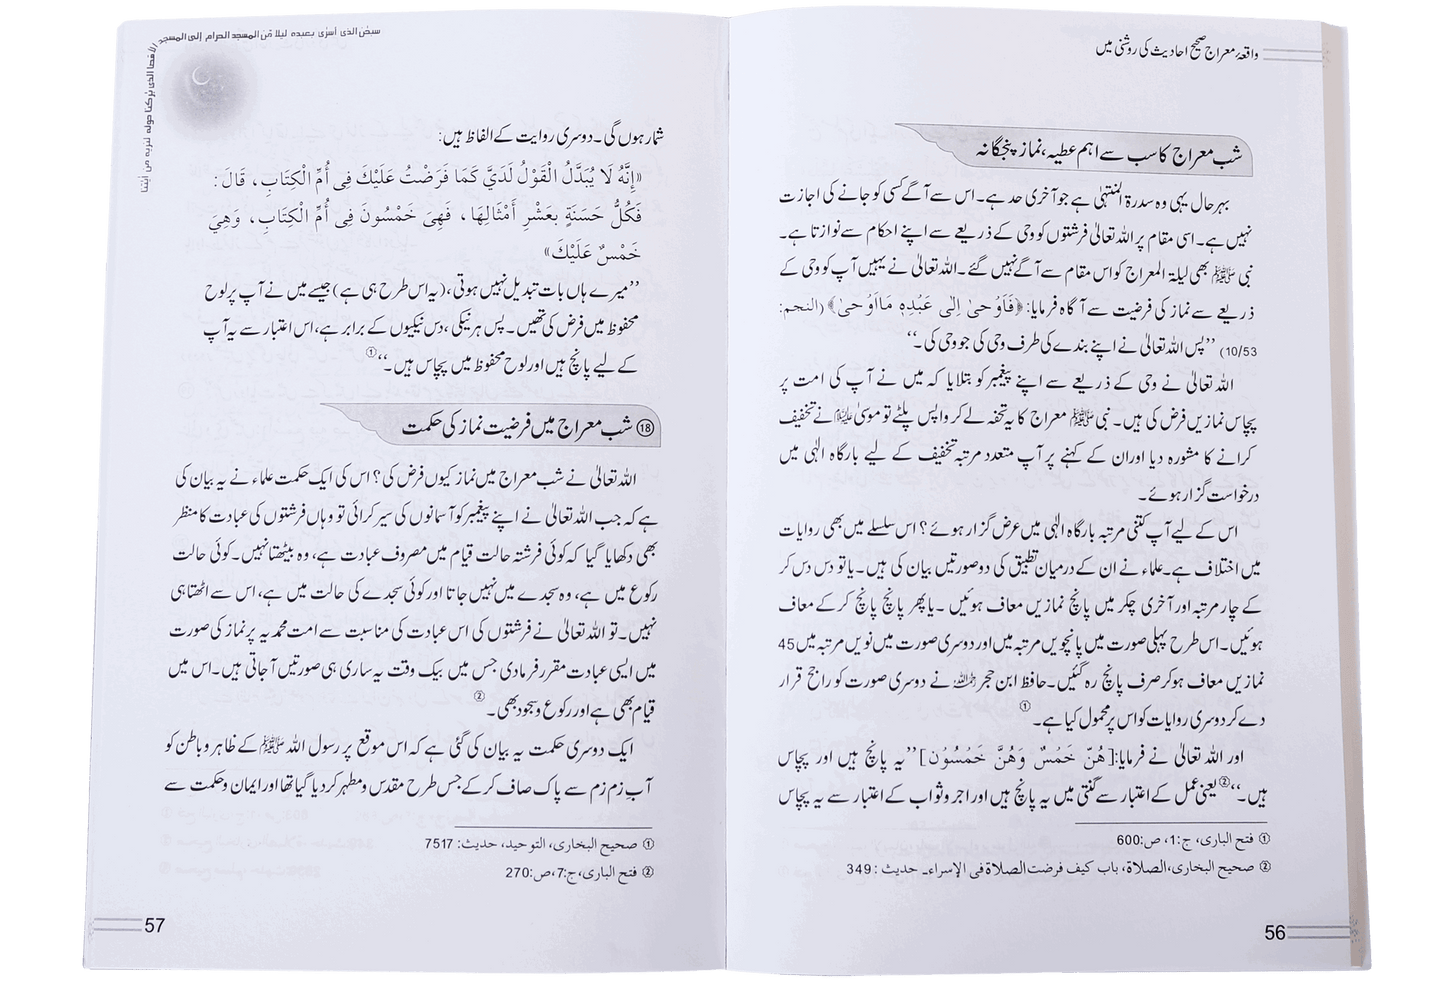 واقعۂ معراج صحیح احادیث کی روشنی میں
شب معراج کا سب سے اہم عطیہ، نماز پنجگانہ
بہرحال یہی وہ سدرۃ المنتہیٰ ہے جو آخری حد ہے۔ اس سے آگے کسی کو جانے کی اجازت
نہیں ہے۔ اسی مقام پر اللہ تعالیٰ فرشتوں کو وحی کے ذریعے سے اپنے احکام سے نوازتا ہے۔
نبی ﷺ بھی لیلۃ المعراج کو اس مقام سے آگے نہیں گئے۔ اللہ تعالیٰ نے یہیں آپ کو وحی کے
ذریعے سے نماز کی فرضیت سے آگاہ فرمایا: ﴿فَاَوْحیٰ اِلیٰ عَبْدِہٖ مَااَوْحیٰ﴾ (النجم:
10/53) ’’پس اللہ تعالیٰ نے اپنے بندے کی طرف وحی کی جو وحی کی۔‘‘
اللہ تعالیٰ نے وحی کے ذریعے سے اپنے پیغمبر کو بتلایا کہ میں نے آپ کی امت پر
پچاس نمازیں فرض کی ہیں۔ نبی ﷺ معراج کا یہ تحفہ لے کر واپس پلٹے تو موسیٰ علیہ السلام نے تخفیف
کرانے کا مشورہ دیا اور ان کے کہنے پر آپ متعدد مرتبہ تخفیف کے لیے بارگاہ الٰہی میں
درخواست گزار ہوئے۔
اس کے لیے آپ کتنی مرتبہ بارگاہ الٰہی میں عرض گزار ہوئے؟ اس سلسلے میں بھی روایات
میں اختلاف ہے۔ علماء نے ان کے درمیان تطبیق کی دو صورتیں بیان کی ہیں۔ یا تو دس دس کر
کے چار مرتبہ اور آخری چکر میں پانچ نمازیں معاف ہوئیں۔ یا پھر پانچ پانچ کر کے معاف
ہوئیں۔ اس طرح پہلی صورت میں پانچویں مرتبہ میں اور دوسری صورت میں نویں مرتبہ میں 45
نمازیں معاف ہو کر صرف پانچ رہ گئیں۔ حافظ ابن حجر رحمہ اللہ نے دوسری صورت کو راجح قرار
دے کر دوسری روایات کو اس پر محمول کیا ہے۔①
اور اللہ تعالیٰ نے فرمایا: [هُنَّ خَمْسٌ وَهُنَّ خَمْسُوْن] ’’یہ پانچ ہیں اور پچاس
ہیں۔‘‘② یعنی عمل کے اعتبار سے گنتی میں یہ پانچ ہیں اور اجر و ثواب کے اعتبار سے یہ پچاس
① فتح الباری، ج:1، ص:600
② صحیح البخاری، الصلاۃ، باب کیف فرضت الصلاۃ فی الإسراء۔ حدیث : 349
56
سبحٰن الذی أسریٰ بعبدہ لیلا من المسجد الحرام إلی المسجد الأقصا الذی بٰرکنا حولہ لنریہ من اٰیٰتنا
شمار ہوں گی۔ دوسری روایت کے الفاظ ہیں:
«إِنَّهُ لَا يُبَدَّلُ الْقَوْلُ لَدَيَّ كَمَا فَرَضْتُ عَلَيْكَ فِی أُمِّ الْكِتَابِ، قَالَ:
فَكُلُّ حَسَنَةٍ بِعَشْرِ أَمْثَالِهَا، فَهِیَ خَمْسُونَ فِی أُمِّ الْكِتَابِ، وَهِيَ
خَمْسٌ عَلَيْكَ»
’’میرے ہاں بات تبدیل نہیں ہوتی، (یہ اس طرح ہی ہے) جیسے میں نے آپ پر لوح
محفوظ میں فرض کی تھیں۔ پس ہر نیکی، دس نیکیوں کے برابر ہے، اس اعتبار سے یہ آپ
کے لیے پانچ ہیں اور لوح محفوظ میں پچاس ہیں۔‘‘①
⑱ شب معراج میں فرضیت نماز کی حکمت
اللہ تعالیٰ نے شب معراج میں نماز کیوں فرض کی؟ اس کی ایک حکمت علماء نے یہ بیان کی
ہے کہ جب اللہ تعالیٰ نے اپنے پیغمبر کو آسمانوں کی سیر کرائی تو وہاں فرشتوں کی عبادت کا منظر
بھی دکھایا گیا کہ کوئی فرشتہ حالت قیام میں مصروف عبادت ہے، وہ بیٹھتا نہیں۔ کوئی حالت
رکوع میں ہے، وہ سجدے میں نہیں جاتا اور کوئی سجدے کی حالت میں ہے، اس سے اٹھتا ہی
نہیں۔ تو اللہ تعالیٰ نے فرشتوں کی اس عبادت کی مناسبت سے امت محمدیہ پر نماز کی صورت
میں ایسی عبادت مقرر فرما دی جس میں بیک وقت یہ ساری ہی صورتیں آجاتی ہیں۔ اس میں
قیام بھی ہے اور رکوع و سجود بھی۔②
ایک دوسری حکمت یہ بیان کی گئی ہے کہ اس موقع پر رسول اللہ ﷺ کے ظاہر و باطن کو
آب زم زم سے پاک صاف کر کے جس طرح مقدس و مطہر کر دیا گیا تھا اور ایمان و حکمت سے
① صحیح البخاری، التوحید، حدیث: 7517
② فتح الباری، ج:7،ص:270
57